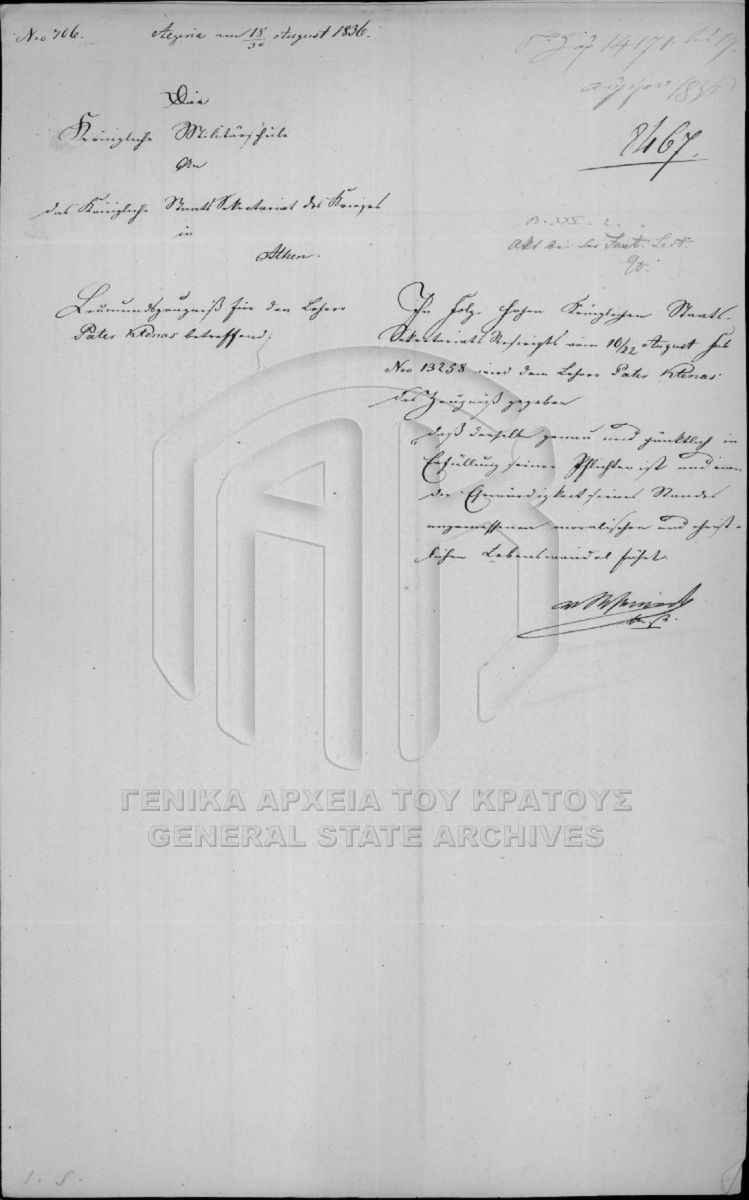 Nro 706. Aegina am 18/30 August 1836.
14171.
1836
8467.
Die
Königliche Militärschule
An
das Königliche Staats Sekretariat des Krieges
in
Athen.
B. XXV. 2.
Akt bei der
Leumundszeugniß für den Lehrer
Pater Ktenas betreffend.
In Folge hohen Königlichen Staats-
Sekretariats Rescripts vom 10/22 August sub
Nro 13258 wird dem Lehrer Pater Ktenas
das Zeugniß gegeben
„daß derselbe genau und pünktlich in
Erfüllung seiner Pflichten ist und einen
der Ehrwürdigkeit seines Standes
angemessenen moralischen und christ-
lichen Lebenswandel führt.
ΓΕΝΙΚΑ ΑΡΧΕΙΑ ΤΟΥ ΚΡΑΤΟΥΣ
GENERAL STATE ARCHIVES